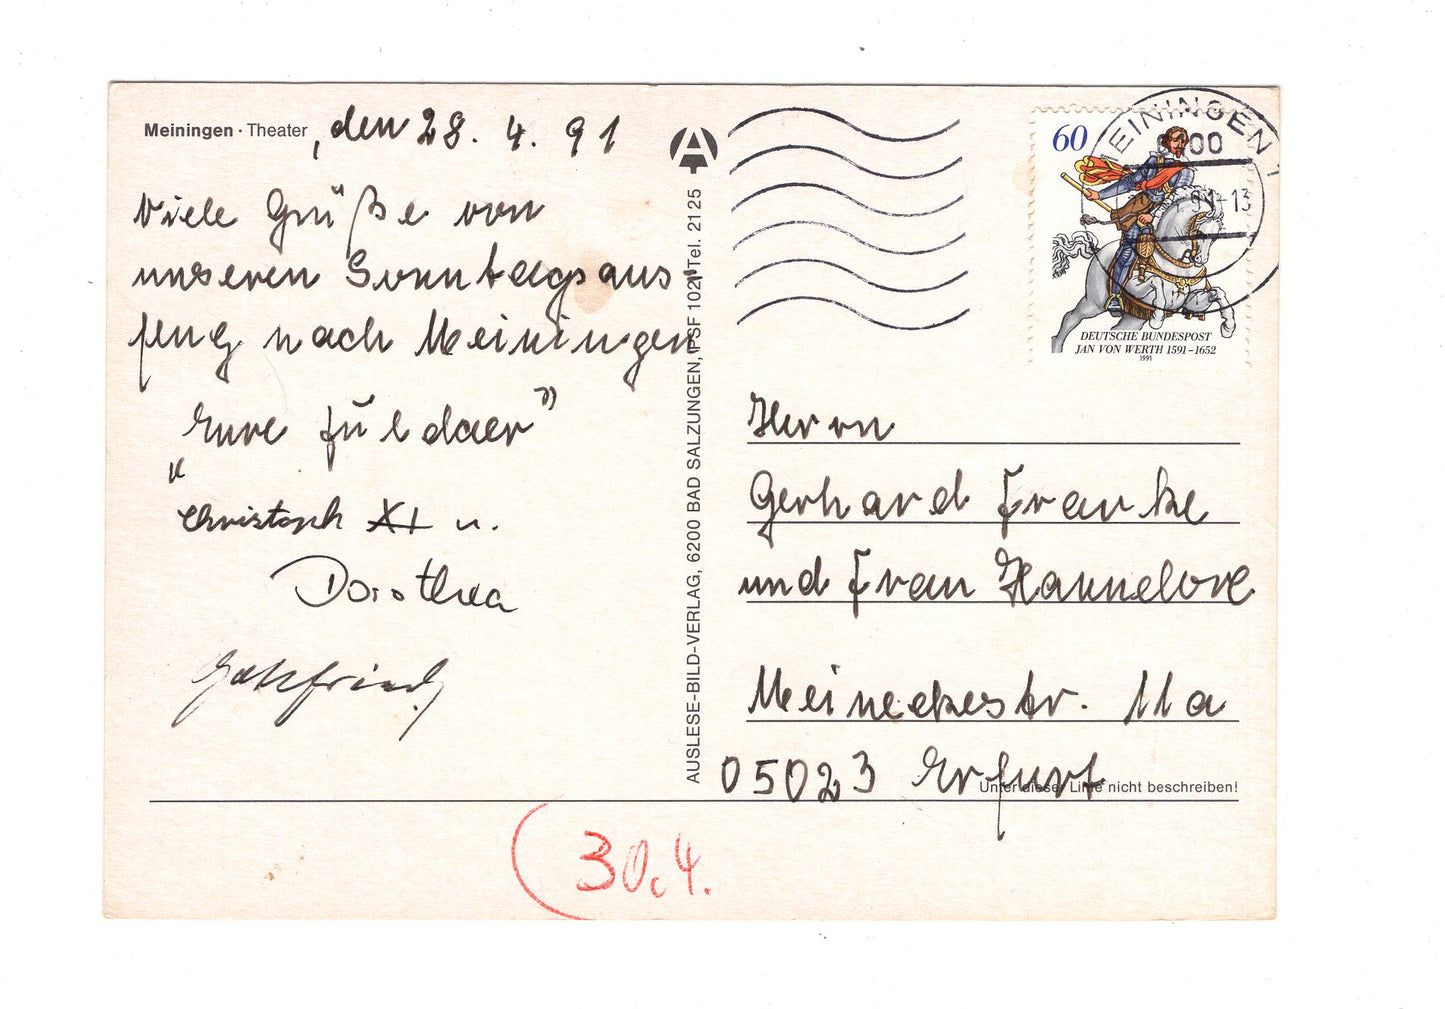 Meiningen · Theater , den 28. 4. 91
Viele Grüße von
unseren Sonntagsaus
flug nach Meiningen
"Eure Fuldaer"
Christoph XI u.
Dorothea
Gottfried
AUSLESE-BILD-VERLAG, 6200 BAD SALZUNGEN, PSF 102, Tel. 21 25
MEININGEN 1
60
DEUTSCHE BUNDESPOST
JAN VON WERTH 1591–1652
1991
Herrn
Gerhard Franke
und Frau Hannelore
Meineckestr. 11a
05023 Erfurt
Unter dieser Linie nicht beschreiben!
30.4.